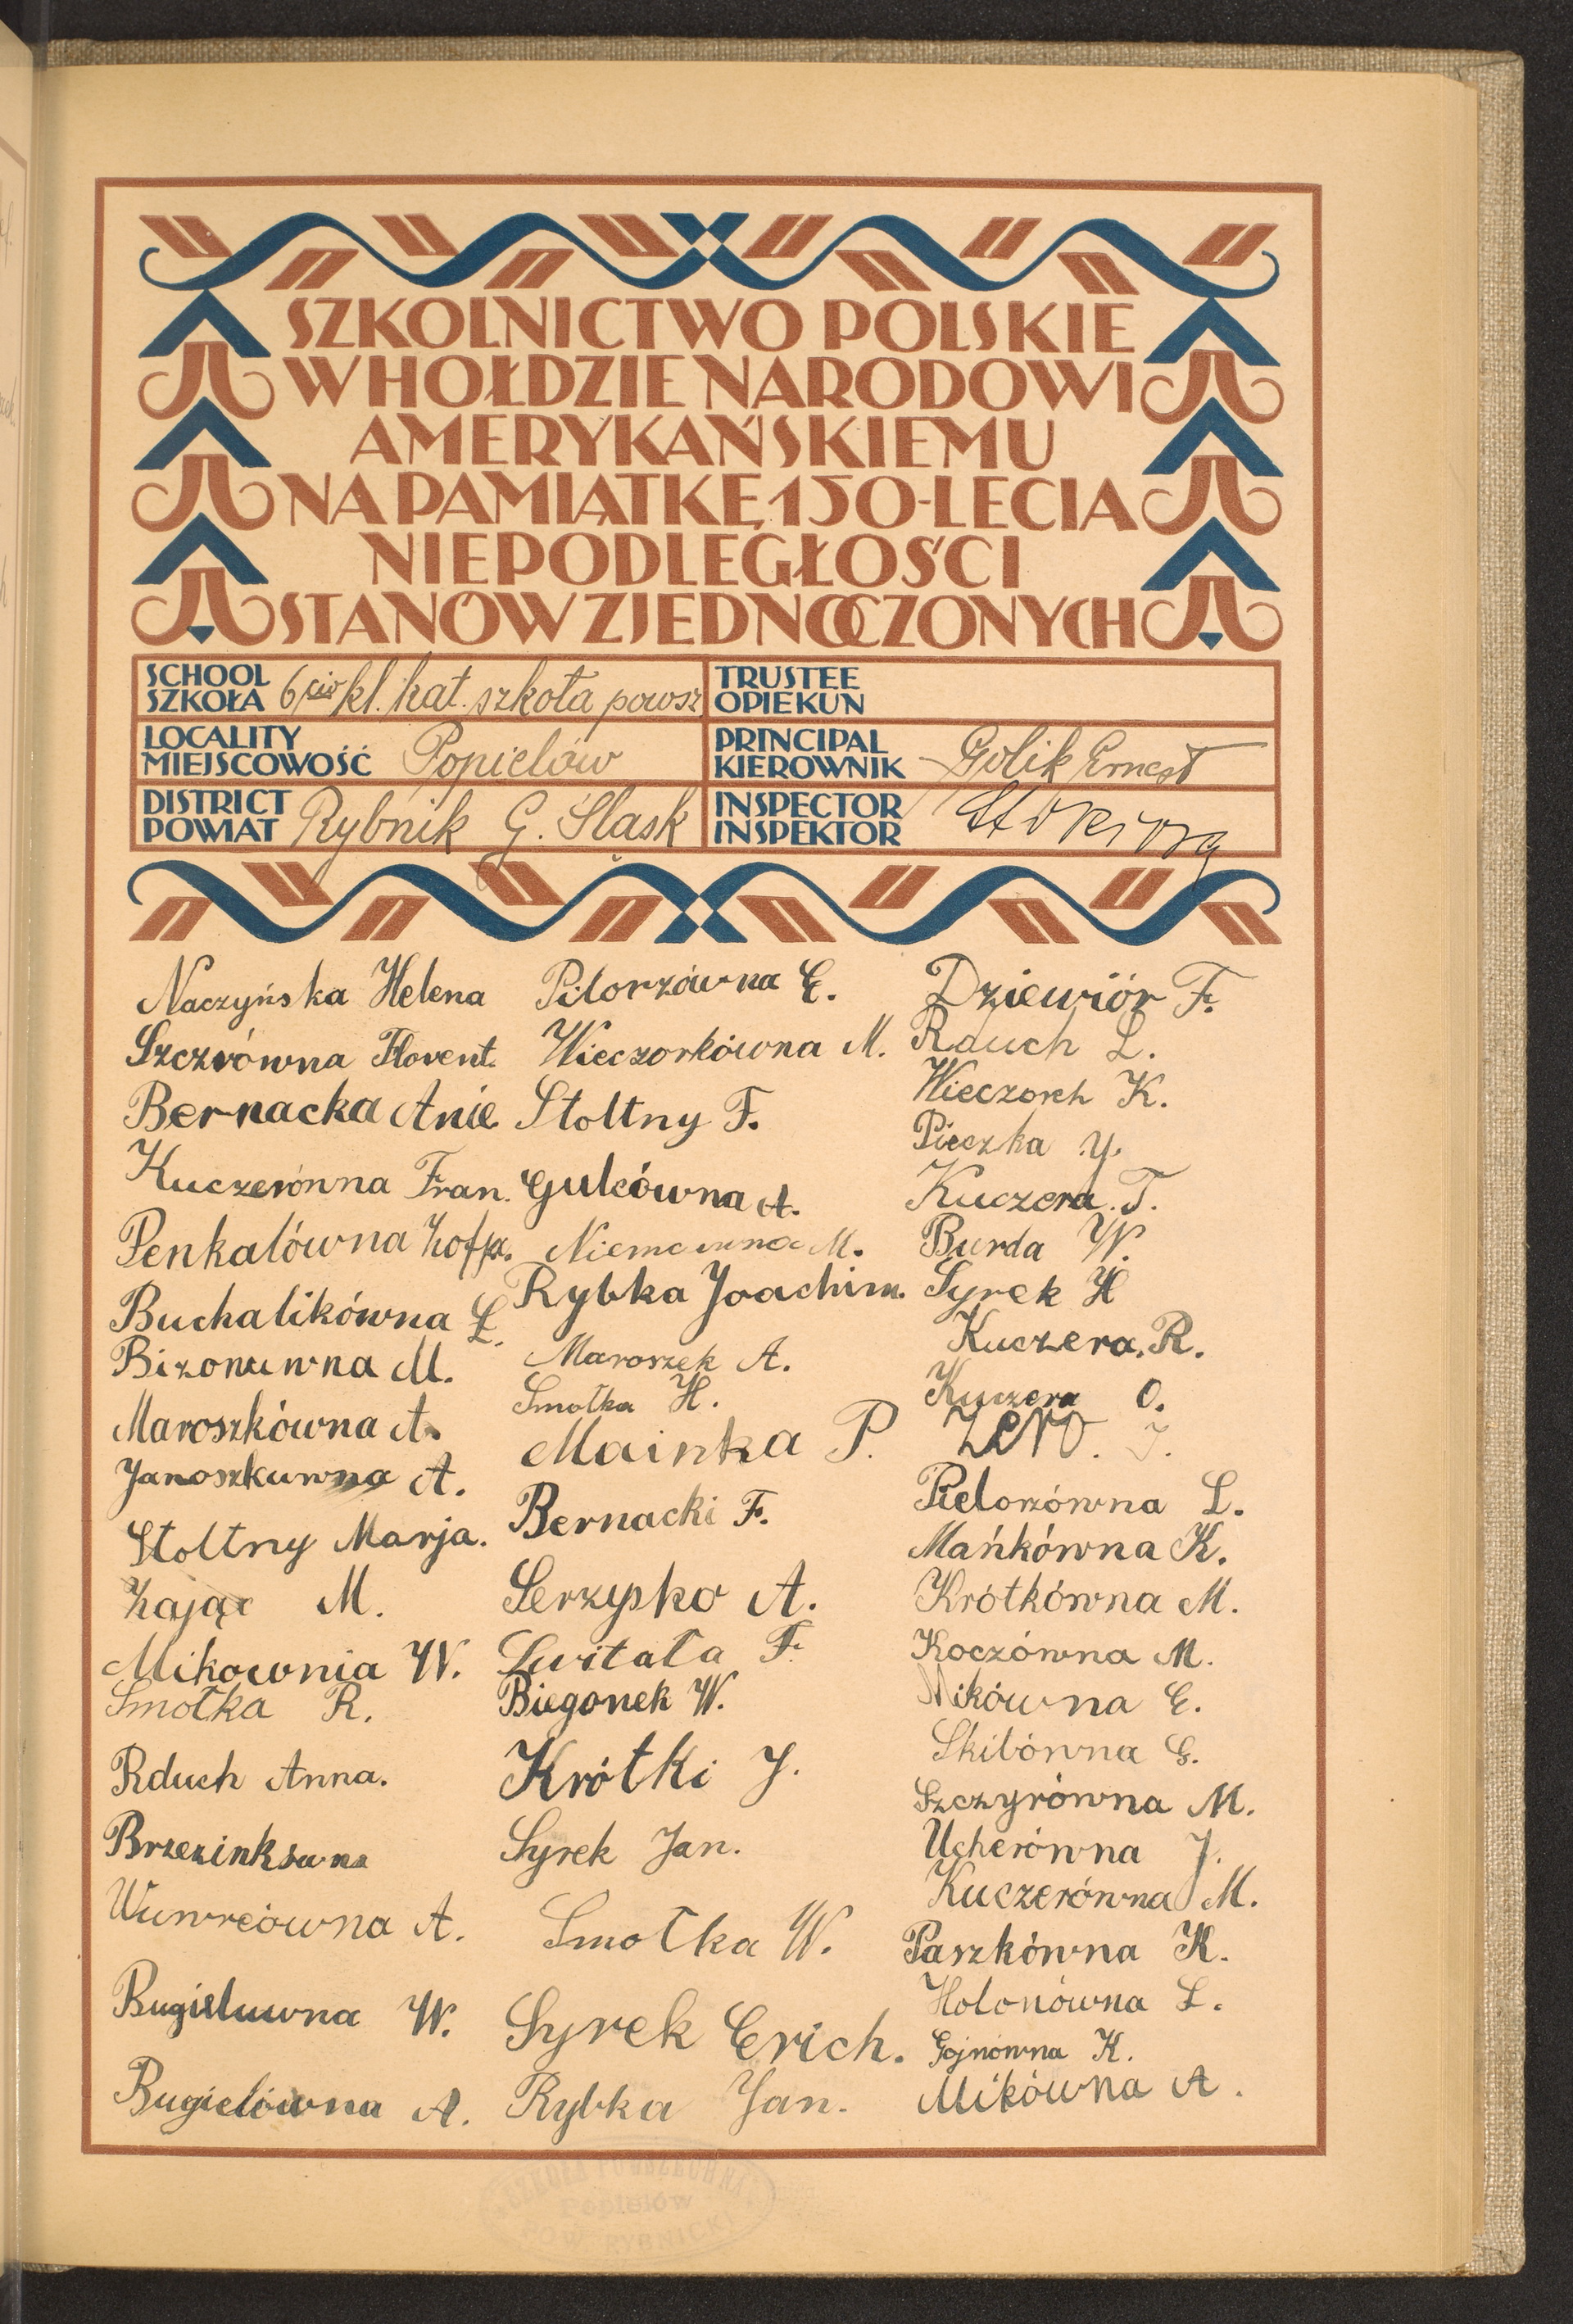 SZKOLNICTWO POLSKIE
W HOŁDZIE NARODOWI
AMERYKAŃSKIEMU
NA PAMIĄTKĘ 150-LECIA
NIEPODLEGŁOŚCI
STANÓW ZJEDNOCZONYCH
SCHOOL
SZKOŁA 6cio kl. kat. szkoła powsz
TRUSTEE
OPIEKUN
LOCALITY
MIEJSCOWOŚĆ Popielów
PRINCIPAL
KIEROWNIK Golik Ernest
DISTRICT
POWIAT Rybnik G. Śląsk
INSPECTOR
INSPEKTOR
Naczyńska Helena
Szczrówna Florent.
Bernacka Anie.
Kuczerónna Fran.
Penkalówna Zofja.
Buchalikówna Ł.
Bizonuwna M.
Maroszkówna A.
Janoszkuwna A.
Stoltny Marja.
Zając M.
Mikownia W.
Smołka R.
Rduch Anna.
Brzezinkówna
A.
Bugieluwna W.
Bugielówna A.
Pilorzówna E.
Wieczorkówna M.
Stoltny F.
Gulcówna A.
M.
Rybka Joachim.
Maroszek A.
Smołka H.
Mainka P.
Bernacki F.
Serzysko A.
Switała F.
Biegonek W.
Krótki J.
Syrek Jan.
Smołka W.
Syrek Erich.
Rybka Jan.
Dziewiór F.
Rduch L.
Wieczorek K.
Pieczka J.
Kuczera. T.
Burda W.
Syrek H
Kuczera. R.
Kuczera O.
Zero. J.
Pielorzówna L.
Mańkówna K.
Krótkówna M.
Koczówna M.
Mikówna E.
Skibówna G.
Szczyrówna M.
Ucherówna J.
Kuczerówna M.
Paszkówna K.
Holonówna L.
Gojnówna K.
Mikówna A.
SZKOŁA POWSZECHNA
Popielów
POW. RYBNICKI